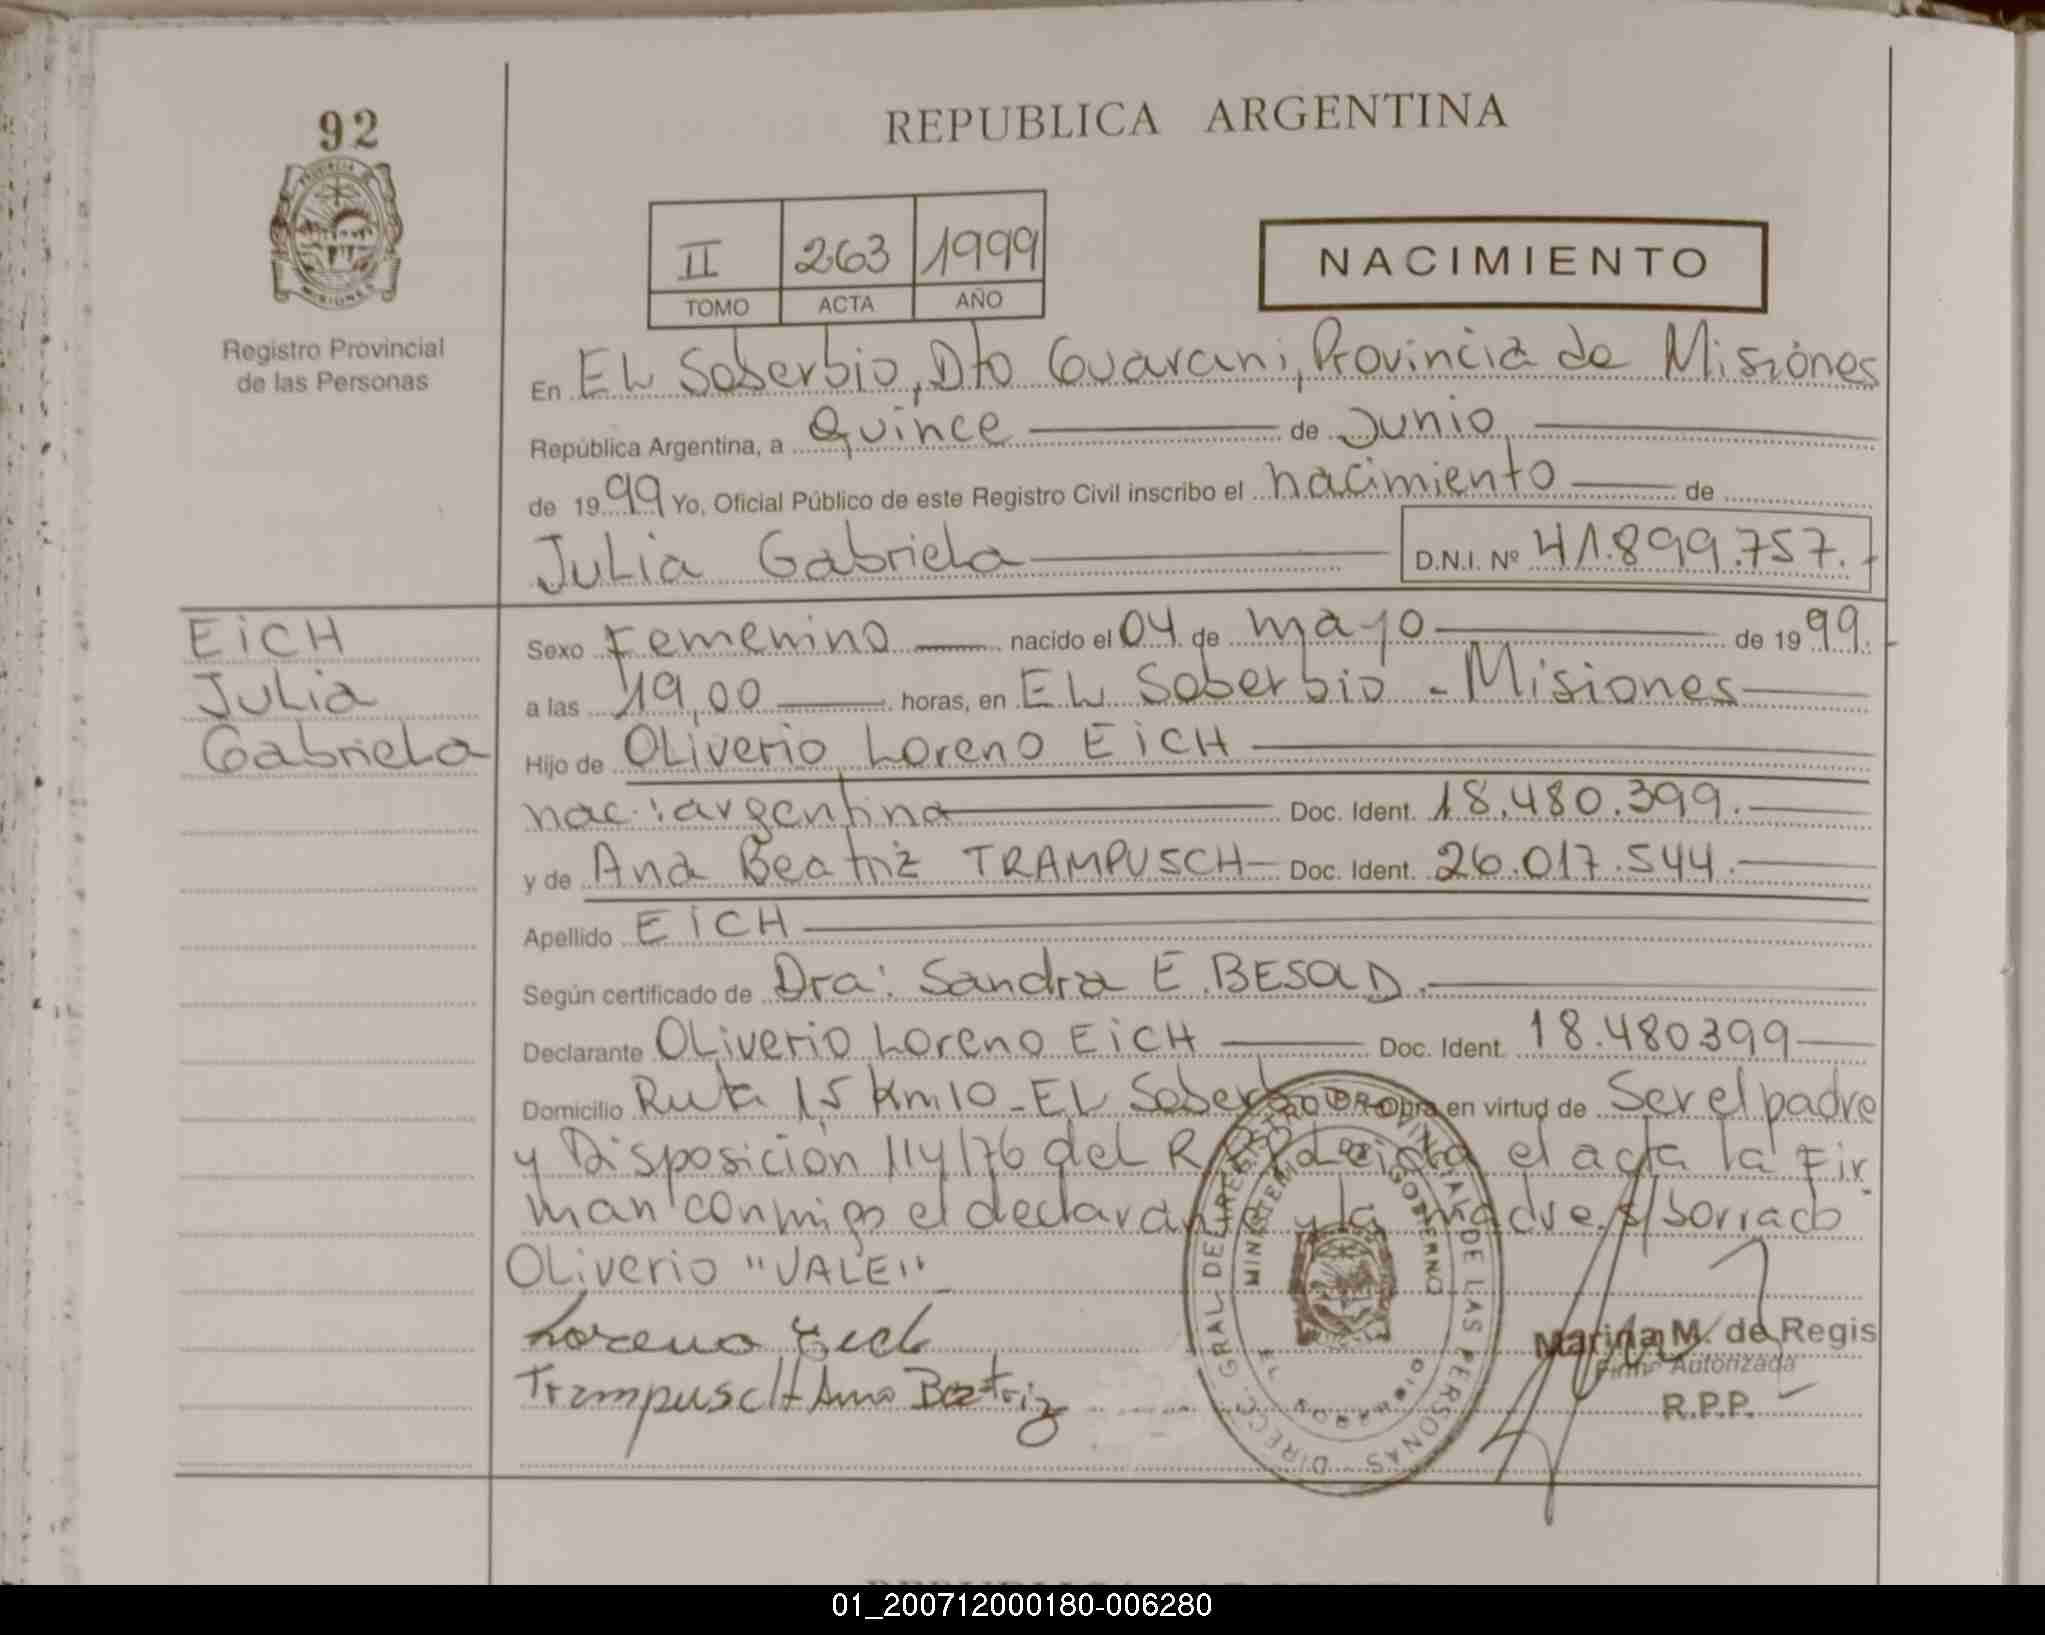 92
PROVINCIA DE
MISIONES
Registro Provincial
de las Personas
REPUBLICA ARGENTINA
II 263 1999
TOMO ACTA AÑO
NACIMIENTO
En EL Soberbio, Dto Guarani, Provincia de Misiones
República Argentina, a Quince de Junio
de 1999 Yo, Oficial Público de este Registro Civil inscribo el nacimiento de
Julia Gabriela D.N.I. Nº 41.899.757.-
EiCH
Julia
Gabriela
Sexo Femenino nacido el 04 de mayo de 1999.-
a las 19,00 horas, en EL Soberbio - Misiones
Hijo de OLiverio Loreno EiCH
nac: argentina Doc. Ident. 18.480.399.
y de Ana Beatriz TRAMPUSCH Doc. Ident. 26.017.544.
Apellido EiCH
Según certificado de Dra: Sandra E. BESAD.
Declarante OLiverio Loreno EiCH Doc. Ident. 18.480399
Domicilio Ruta 15 Km 10 - EL Soberbio Obra en virtud de Ser el padre
y Disposición 114/76 del Leida el acta la Fir
man conmigo el declarante y la madre. s/borrado
OLiverio "VALE"
Loreno Eich
Trampusch Ana Beatriz
DIRECC. GRAL. DEL REGISTRO PROVINCIAL DE LAS PERSONAS
MINISTERIO DE GOBIERNO
Marina M. de Regis
Firma Autorizada
R.P.P.
01_200712000180-006280